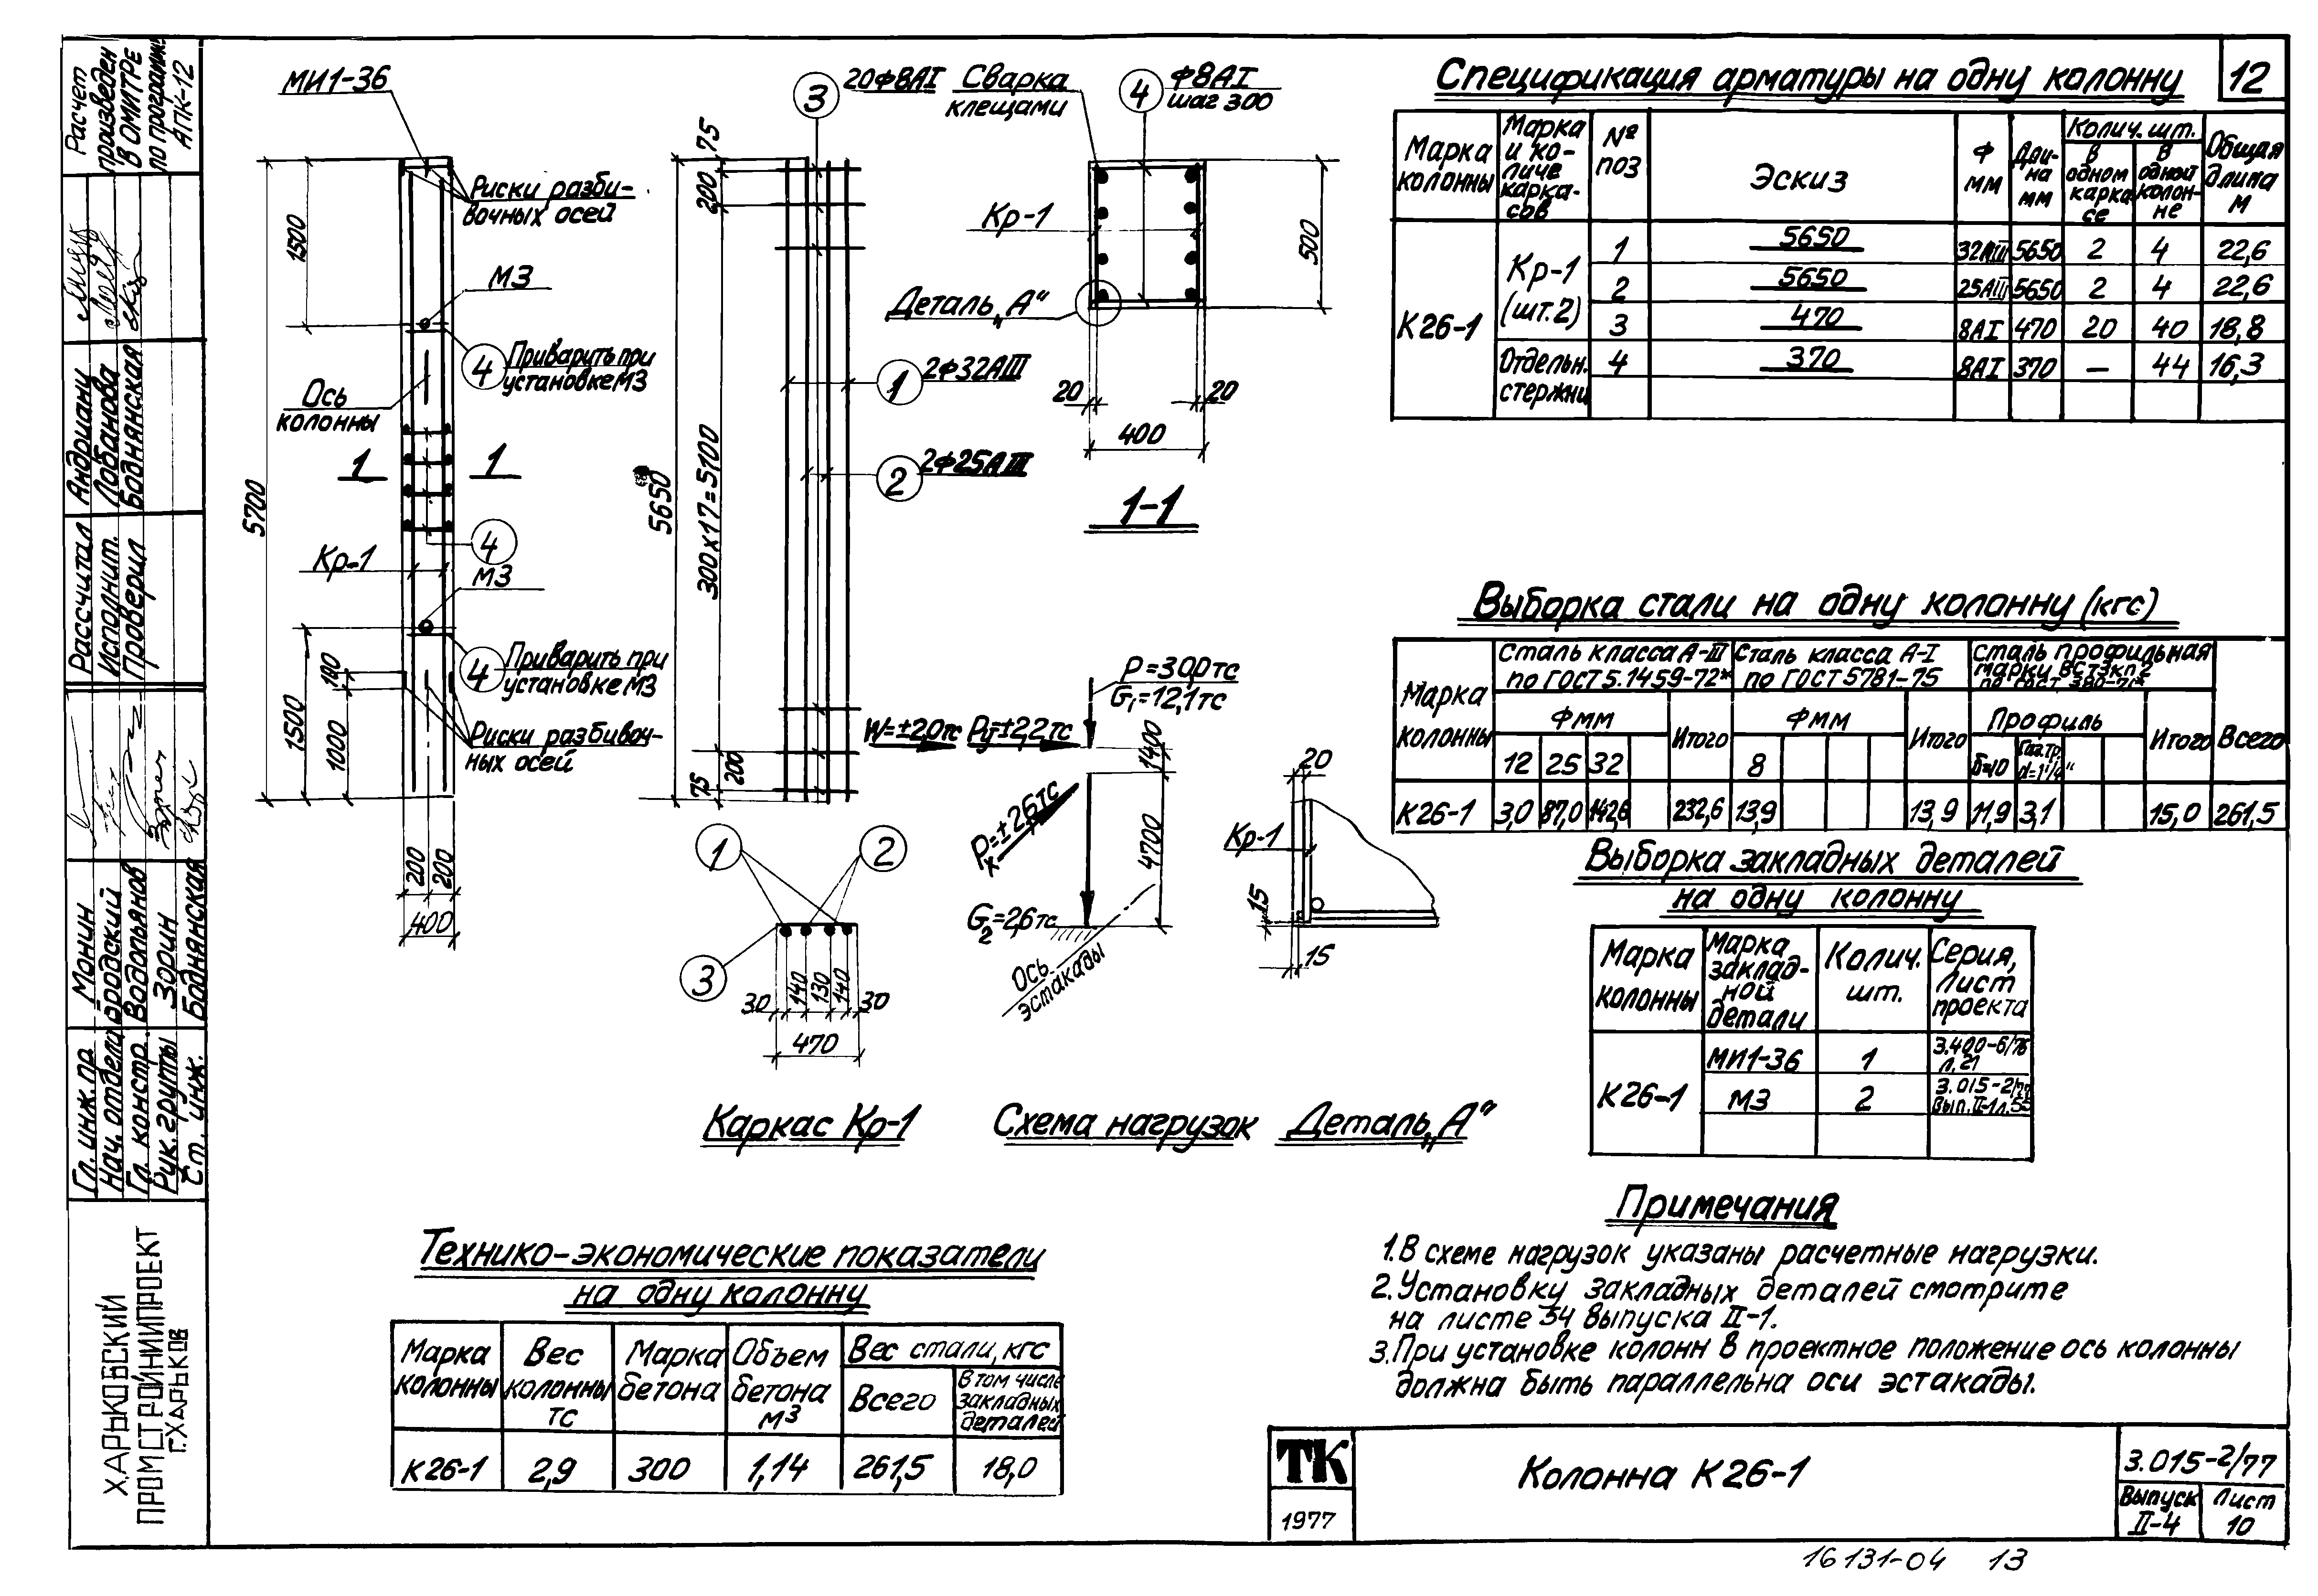 12
МИ1-36
Риски разби-
вочных осей
1500
М3
4
Приварить при
установке М3
Ось
колонны
1
1
5700
4
Кр-1
М3
4
Приварить при
установке М3
100
1500
1000
Риски разбивоч-
ных осей
200
200
400
3
20ф8АI
75
200
300х17=5100
5650
1
2ф32АIII
2
2ф25АIII
200
75
1
2
3
30
140
130
140
30
470
Каркас Кр-1
Сварка
клещами
4
ф8АI
шаг 300
Кр-1
500
Деталь „А“
20
20
400
1-1
Р=300тс
G₁=12,1тс
W=±2,0тс
Рy=±2,2тс
1400
Рx=±2,6тс
4700
G₂=2,6тс
Ось
эстакады
Схема нагрузок
20
Кр-1
15
15
Деталь „А“
Спецификация арматуры на одну колонну
Марка колонны
Марка и количе каркасов
№ поз
Эскиз
Ф мм
Длина мм
Колич. шт.
В одном каркасе
В одной колонне
Общая длина м
К26-1
Кр-1 (шт.2)
1 5650 32АIII 5650 2 4 22,6
2 5650 25АIII 5650 2 4 22,6
3 470 8АI 470 20 40 18,8
Отдельн. стержни
4 370 8АI 370 — 44 16,3
Выборка стали на одну колонну (кгс)
Марка колонны
Сталь класса А-III
по ГОСТ 5.1459-72*
Сталь класса А-I
по ГОСТ 5781-75
Сталь профильная
марки ВСт3кп2
по ГОСТ 380-71*
Фмм
Итого
Фмм
Итого
Профиль
Итого
Всего
12 25 32 8 δ=10 Газ.тр. d=1¼"
К26-1 3,0 87,0 142,6 232,6 13,9 13,9 11,9 3,1 15,0 261,5
Выборка закладных деталей
на одну колонну
Марка колонны
Марка закладной детали
Колич. шт.
Серия, Лист проекта
К26-1
МИ1-36 1 3.400-6/76 л.21
М3 2 3.015-2/77 Вып.II-1 л.55
Примечания
1.В схеме нагрузок указаны расчетные нагрузки.
2.Установку закладных деталей смотрите
на листе 54 выпуска II-1.
3.При установке колонн в проектное положение ось колонны
должна быть параллельна оси эстакады.
Технико-экономические показатели
на одну колонну
Марка колонны
Вес колонны тс
Марка бетона
Объем бетона м3
Вес стали, кгс
Всего
В том числе закладных деталей
К26-1 2,9 300 1,14 261,5 18,0
ТК
1977
Колонна К26-1
3.015-2/77
Выпуск
II-4
Лист
10
16131-04 13
Расчет
произведен
в ОМИТРЕ
по програм.
АПК-12
Рассчитал Андриани
Исполнит. Лобанова
Проверил Боднянская
Гл. инж. пр. Монин
Нач. отдела Бродский
Гл. констр. Водопьянов
Рук. группы Зорин
Ст. инж. Боднянская
ХАРЬКОВСКИЙ
ПРОМСТРОЙНИИПРОЕКТ
Г.ХАРЬКОВ